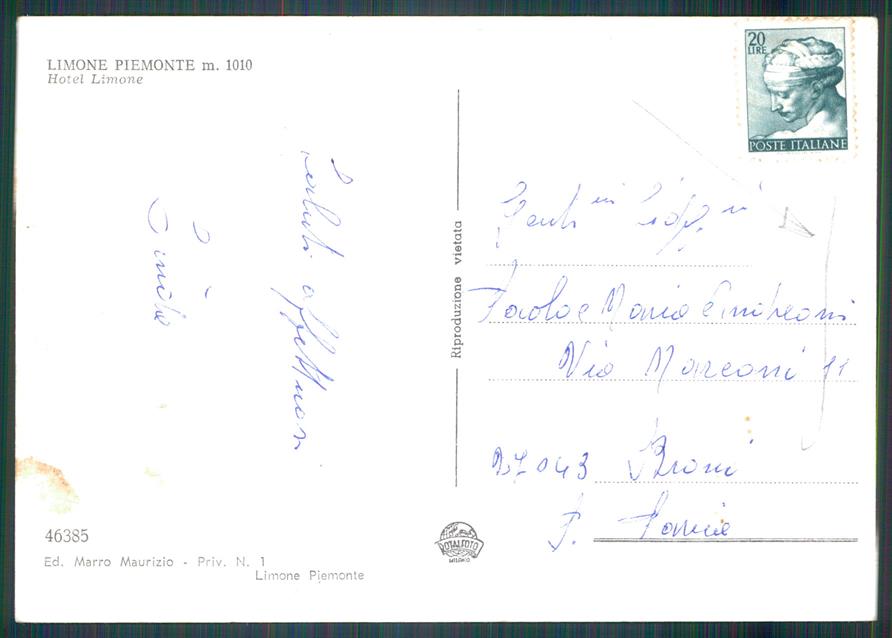 LIMONE PIEMONTE m. 1010
Hotel Limone
Saluti affettuosi
20
LIRE
POSTE ITALIANE
Riproduzione vietata
Gent.mi Sigg.ri
Paola e Maria
Via Marconi 11
27043 Broni
P. Pavia
46385
Ed. Marro Maurizio - Priv. N. 1
Limone Piemonte
ROTALFOTO
MILANO